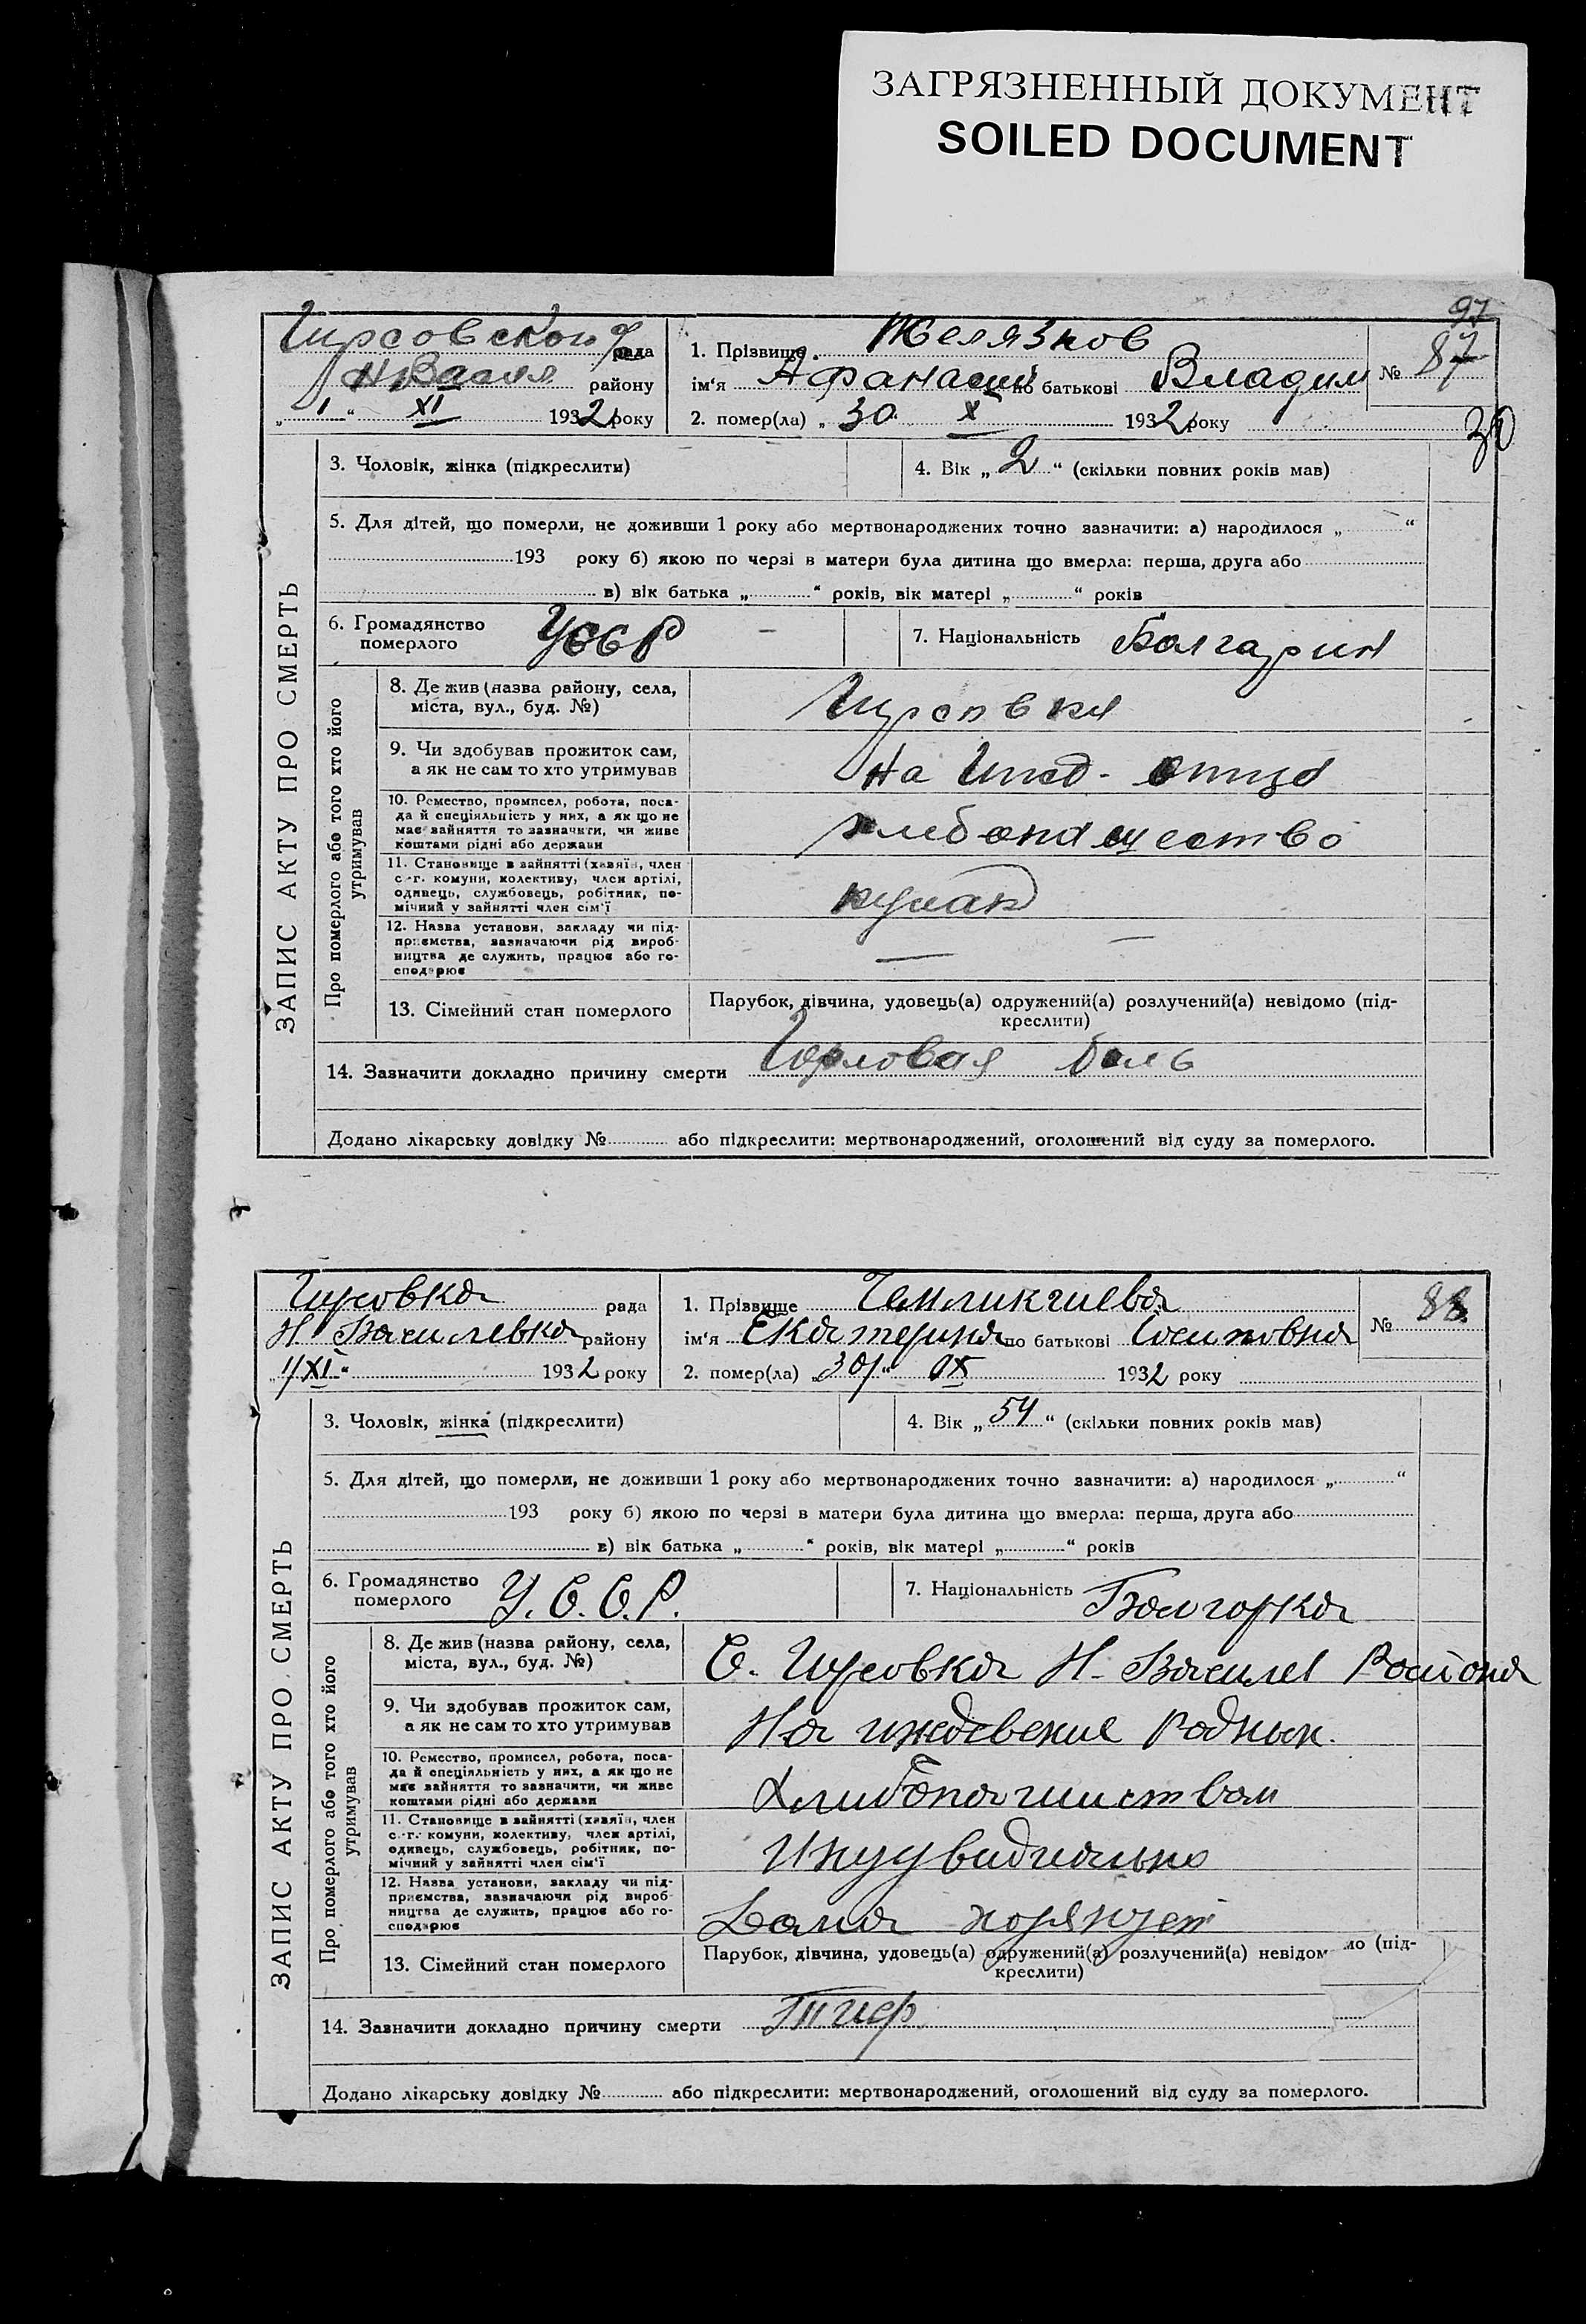 ЗАГРЯЗНЕННЫЙ ДОКУМЕНТ
SOILED DOCUMENT
97
Гирсовской рада
Н Васил району
„ 1 “ XI 1932 року
1. Прізвище Желязков
ім‘я Афанасий по батькові Владим
№ 87
2. помер(ла) „ 30 “ X 1932 року
30
ЗАПИС АКТУ ПРО СМЕРТЬ
3. Чоловік, жінка (підкреслити)
4. Вік „ 2 “ (скільки повних років мав)
5. Для дітей, що померли, не доживши 1 року або мертвонароджених точно зазначити: а) народилося „ “
193 року б) якою по черзі в матери була дитина що вмерла: перша, друга або
в) вік батька „ “ років, вік матері „ “ років
6. Громадянство померлого УССР
7. Національність Болгарин
Про померлого або того хто його утримував
8. Де жив (назва району, села,
міста, вул., буд. №)
Гирсовка
9. Чи здобував прожиток сам,
а як не сам то хто утримував
На Ижд. отца
10. Ремество, промисел, робота, поса-
да й спеціяльність у них, а як що не
має зайняття то зазначити, чи живе
коштами рідні або держави
хлебопащество
11. Становище в зайнятті (хазяїн, член
с.-г. комуни, колективу, член артілі,
одинець, службовець, робітник, по-
мічний у зайнятті член сім‘ї
кулак
12. Назва установи, закладу чи під-
приємства, зазначаючи рід вироб-
ництва де служить, працює або го-
сподарює
—
13. Сімейний стан померлого
Парубок, дівчина, удовець(а) одружений(а) розлучений(а) невідомо (під-
креслити)
14. Зазначити докладно причину смерти Горловая боль
Додано лікарську довідку № або підкреслити: мертвонароджений, оголошений від суду за померлого.
Гирсовка рада
Н Василевка району
„1/XI“ 1932 року
1. Прізвище
ім‘я Екатерина по батькові Осиповна
№ 88
2. помер(ла) „30/“ X 1932 року
ЗАПИС АКТУ ПРО СМЕРТЬ
3. Чоловік, жінка (підкреслити)
4. Вік „ 54 “ (скільки повних років мав)
5. Для дітей, що померли, не доживши 1 року або мертвонароджених точно зазначити: а) народилося „ “
193 року б) якою по черзі в матери була дитина що вмерла: перша, друга або
в) вік батька „ “ років, вік матері „ “ років
6. Громадянство померлого У.С.С.Р.
7. Національність Болгорка
Про померлого або того хто його утримував
8. Де жив (назва району, села,
міста, вул., буд. №)
С. Гирсовка Н-Василев Района
9. Чи здобував прожиток сам,
а як не сам то хто утримував
На иждевение Родных.
10. Ремество, промисел, робота, поса-
да й спеціяльність у них, а як що не
має зайняття то зазначити, чи живе
коштами рідні або держави
11. Становище в зайнятті (хазяїн, член
с.-г. комуни, колективу, член артілі,
одинець, службовець, робітник, по-
мічний у зайнятті член сім‘ї
12. Назва установи, закладу чи під-
приємства, зазначаючи рід вироб-
ництва де служить, працює або го-
сподарює
13. Сімейний стан померлого
Парубок, дівчина, удовець(а) одружений(а) розлучений(а) невідомо (під-
креслити)
14. Зазначити докладно причину смерти Тиф.
Додано лікарську довідку № або підкреслити: мертвонароджений, оголошений від суду за померлого.